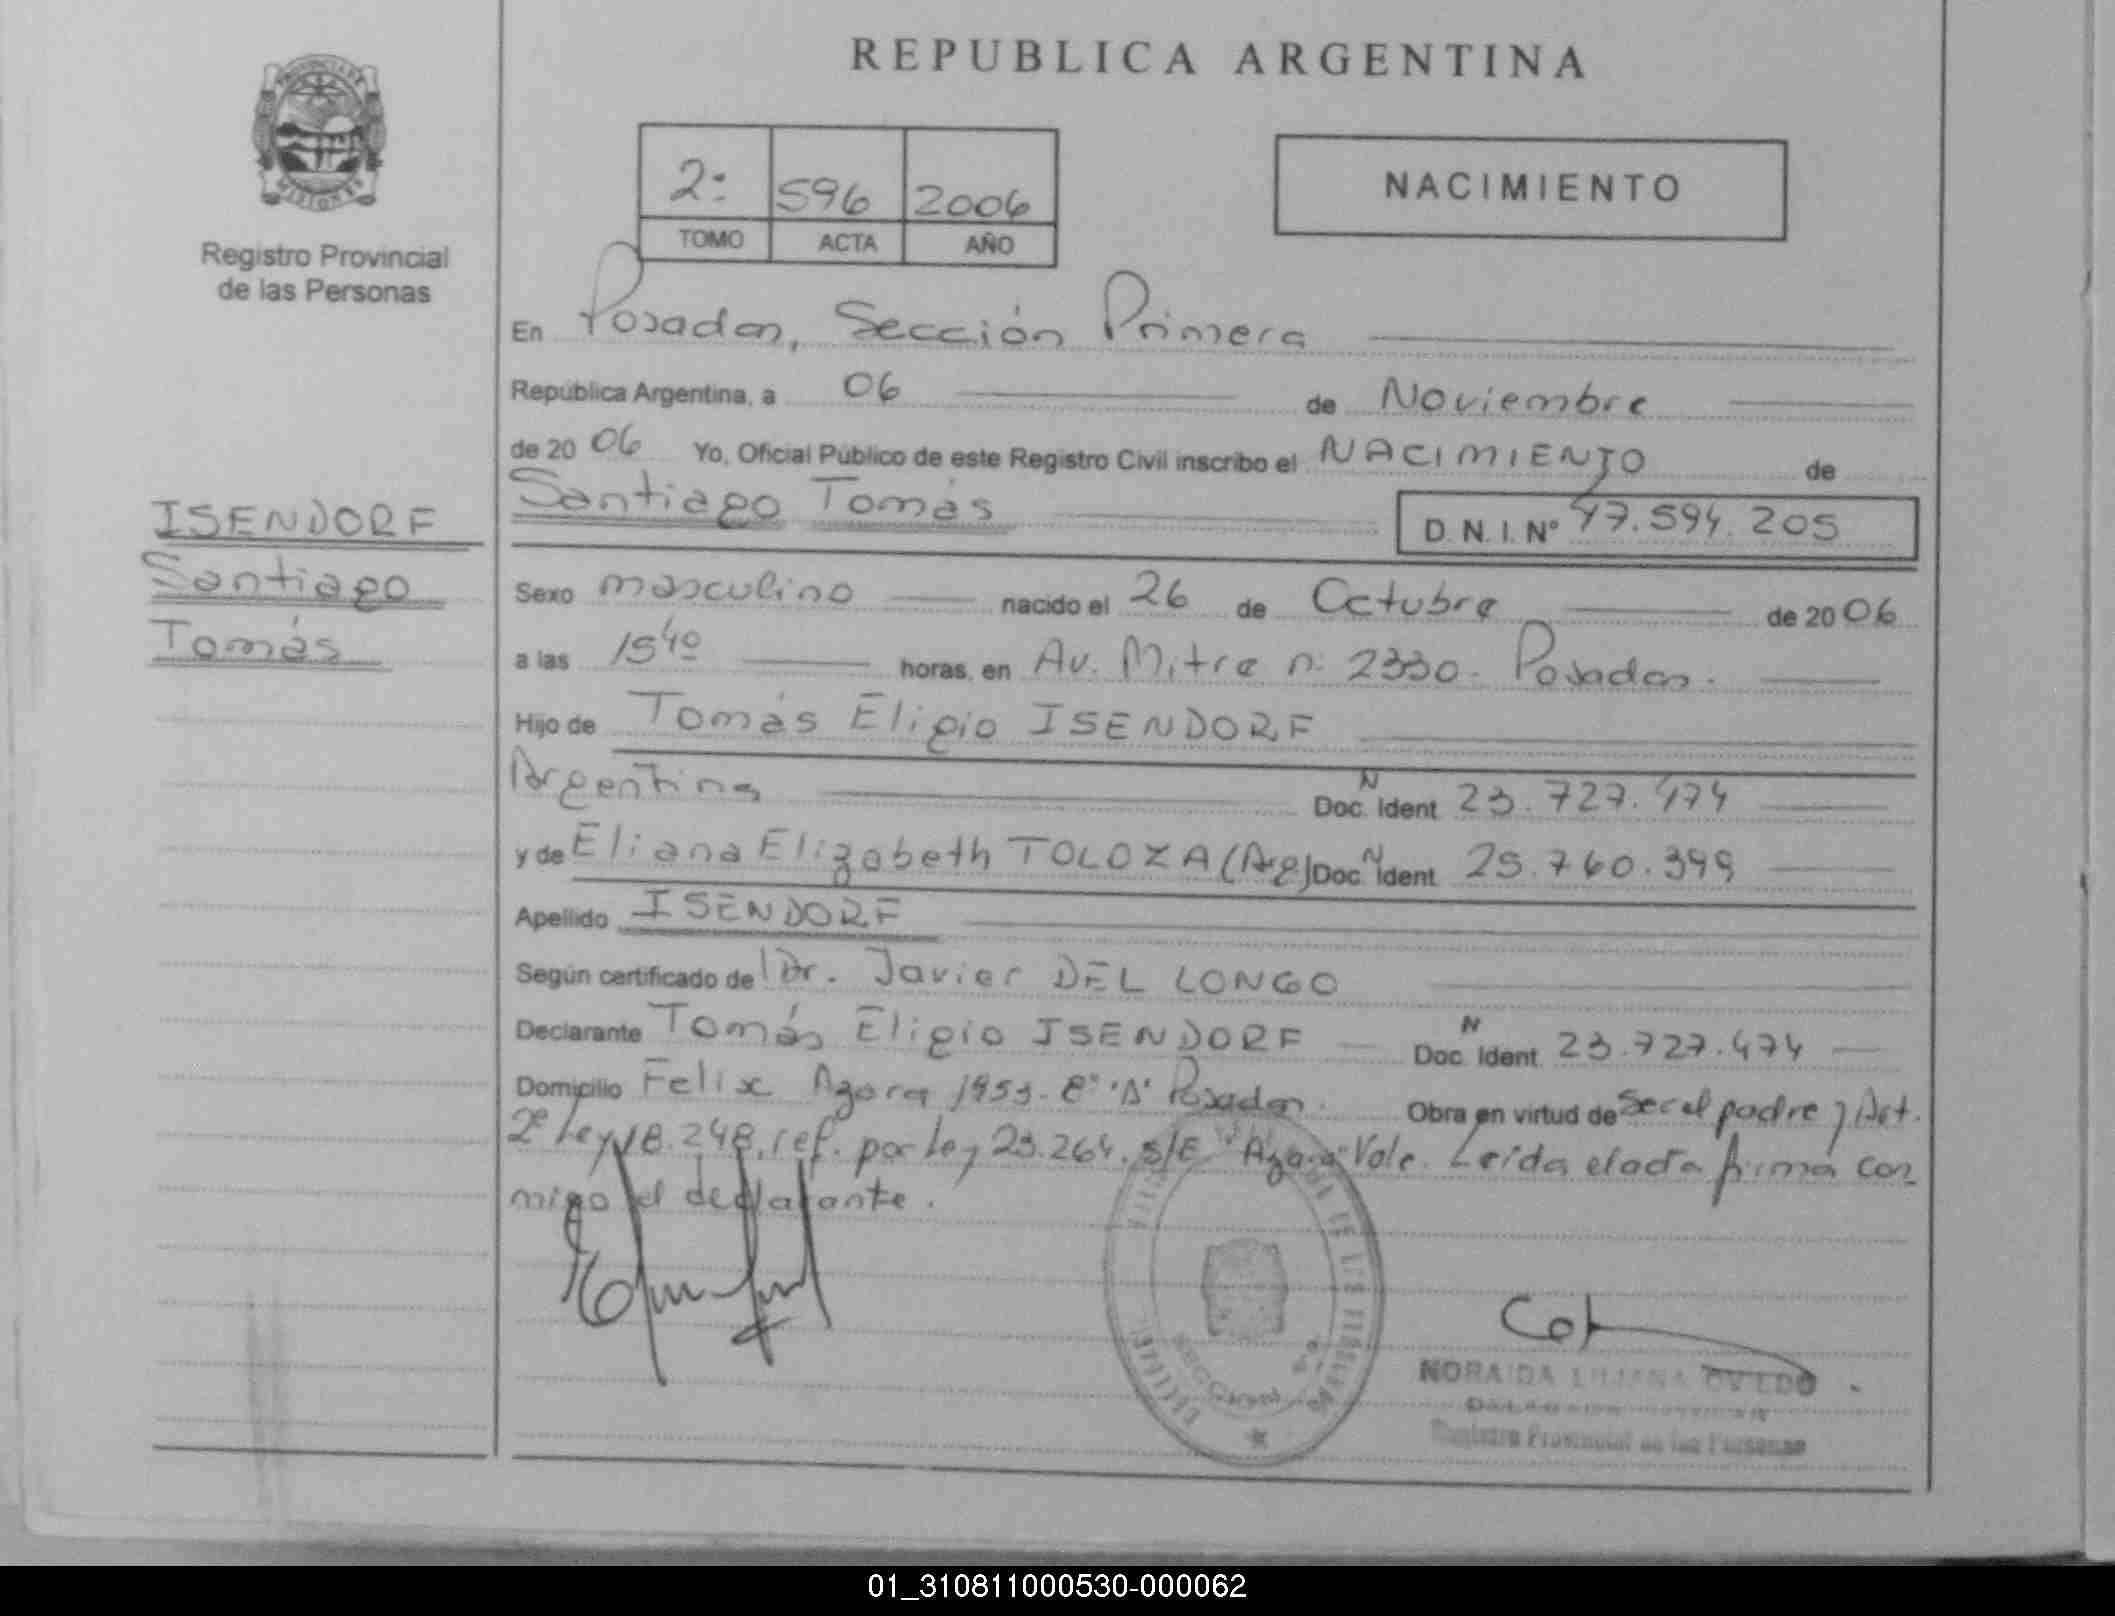 REPUBLICA ARGENTINA
PROVINCIA DE
MISIONES
Registro Provincial
de las Personas
2: 596 2006
TOMO ACTA AÑO
NACIMIENTO
En Posadas, Sección Primera
República Argentina, a 06 de Noviembre
de 20 06 Yo, Oficial Público de este Registro Civil inscribo el NACIMIENTO de
Santiago Tomás D.N.I. Nº 47.594.205
ISENDORF
Santiago
Tomás
Sexo masculino nacido el 26 de Octubre de 20 06
a las 15 40 horas, en Av. Mitre n: 2330. Posadas.
Hijo de Tomás Eligio ISENDORF
Argentina N Doc. Ident. 23.727.474
y de Eliana Elizabeth TOLOZA (Arg) N Doc. Ident. 25.760.399
Apellido ISENDORF
Según certificado de Dr. Javier DEL LONGO
Declarante Tomás Eligio ISENDORF N Doc. Ident. 23.727.474
Domicilio Felix Azara 1953. 8º "A" Posadas. Obra en virtud de Ser el padre y Art.
2º Ley 18.248, ref. por Ley 23.264. S/E "Azara" Vale. Leída el acta firma con
migo el declarante.
NORAIDA LILIANA OVIEDO
Registro Provincial de las Personas
01_310811000530-000062